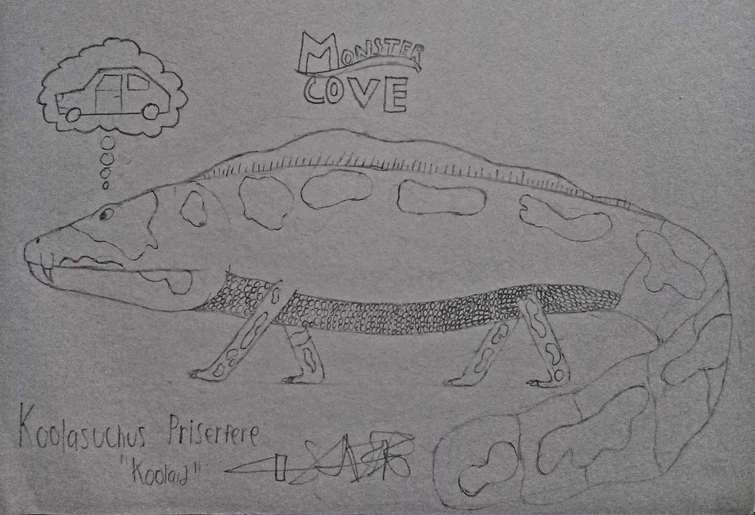 MONSTER
COVE
Koolasuchus Priserfere
"Koolaid"